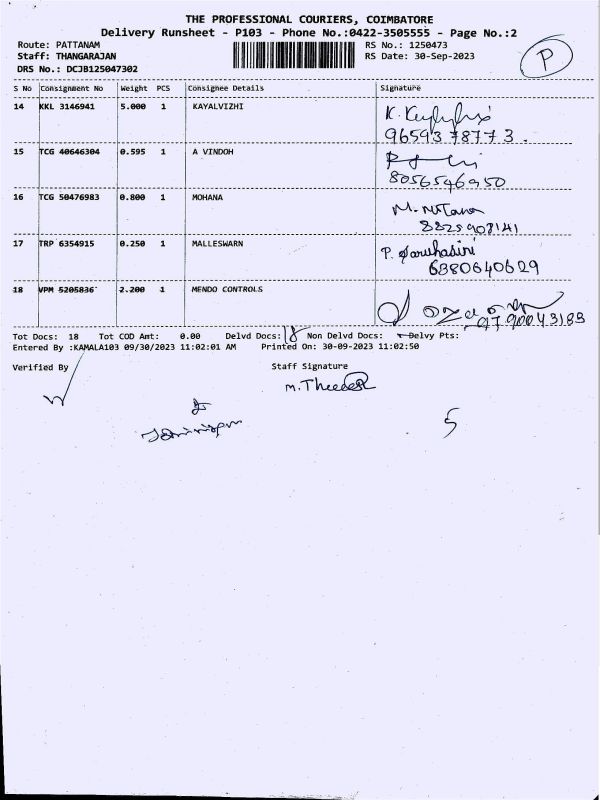 THE PROFESSIONAL COURIERS, COIMBATORE
Delivery Runsheet - P103 - Phone No.:0422-3505555 - Page No.:2
Route: PATTANAM RS No.: 1250473
Staff: THANGARAJAN RS Date: 30-Sep-2023
DRS No.: DCJB125047302
P
S No Consignment No Weight PCS Consignee Details Signature
14 KKL 3146941 5.000 1 KAYALVIZHI
9659378773.
15 TCG 40646304 0.595 1 A VINDOH
8056546950
16 TCG 50476983 0.800 1 MOHANA
8825908141
17 TRP 6354915 0.250 1 MALLESWARN P. Saruhasini
6380640629
18 VPM 5205836 2.200 1 MENDO CONTROLS
9790043183
Tot Docs: 18 Tot COD Amt: 0.00 Delvd Docs: 18 Non Delvd Docs: Delvy Pts:
Entered By :KAMALA103 09/30/2023 11:02:01 AM Printed On: 30-09-2023 11:02:50
Verified By Staff Signature
5